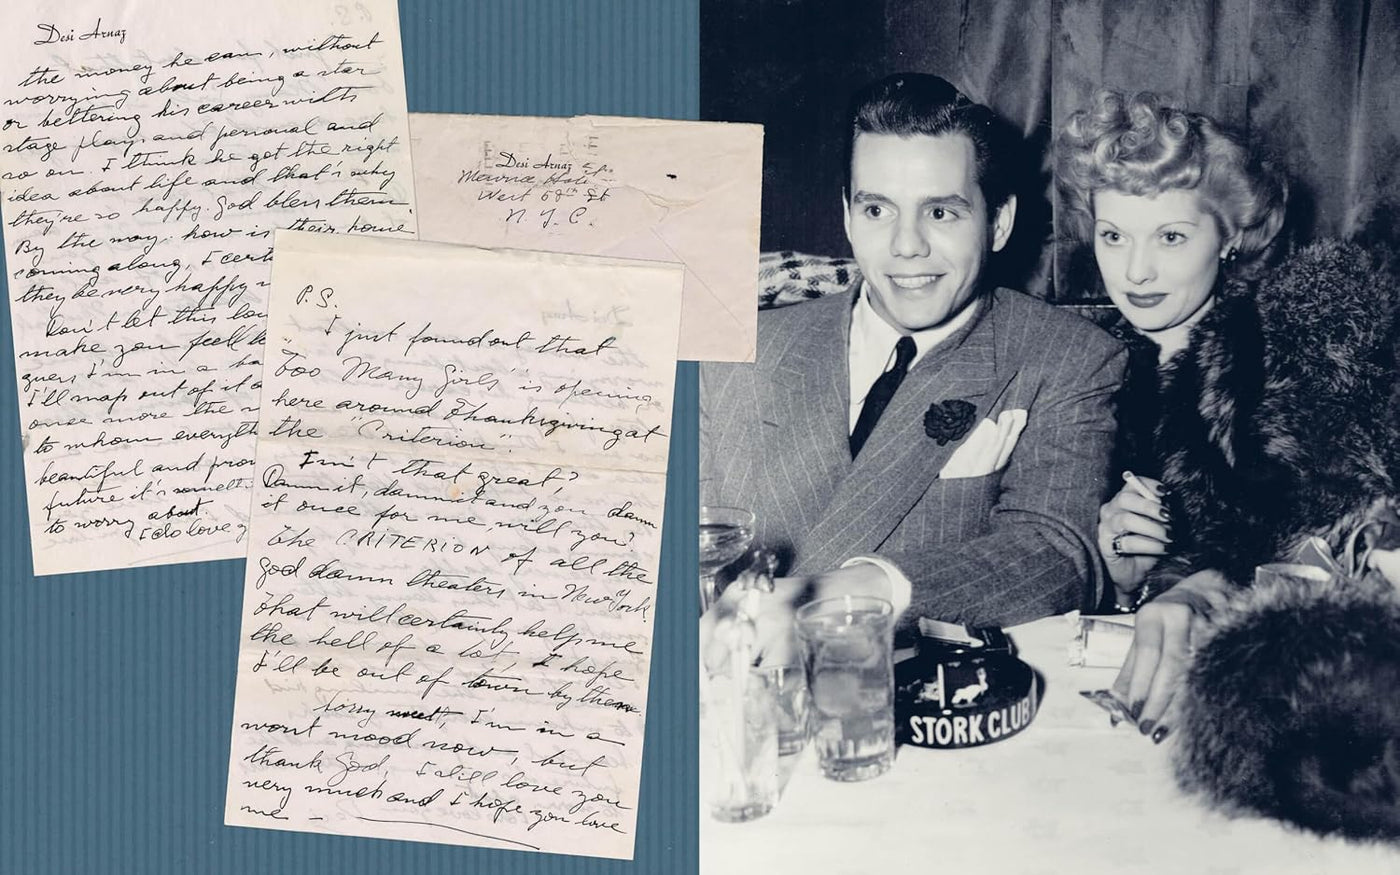 Desi Arnaz
the money he can, without
worrying about being a star
or bettering his career with
stage plays and personal and
so on. I think he got the right
idea about life and that's why
they're so happy. God bless them.
By the way, how is their home
coming along, I cert
they be very happy
Don't let this
make you feel
guess I'm in a ba
I'll snap out of it a
once more the
to whom everyth
beautiful and pro
future it's
to worry about.
I do love y
Desi Arnaz
West 58th St
N. Y. C.
P.S.
I just found out that
"Too Many Girls" is opening
here around Thanksgiving at
the "Criterion".
Isn't that great?
Damn it, damn it and you damn
it once for me will you?
The CRITERION of all the
god damn theaters in New York.
That will certainly help me
the hell of a lot, I hope
I'll be out of town by then.
Sorry sweet, I'm in a
worst mood now, but
thank God, I still love you
very much and I hope you love
me —
STORK CLUB